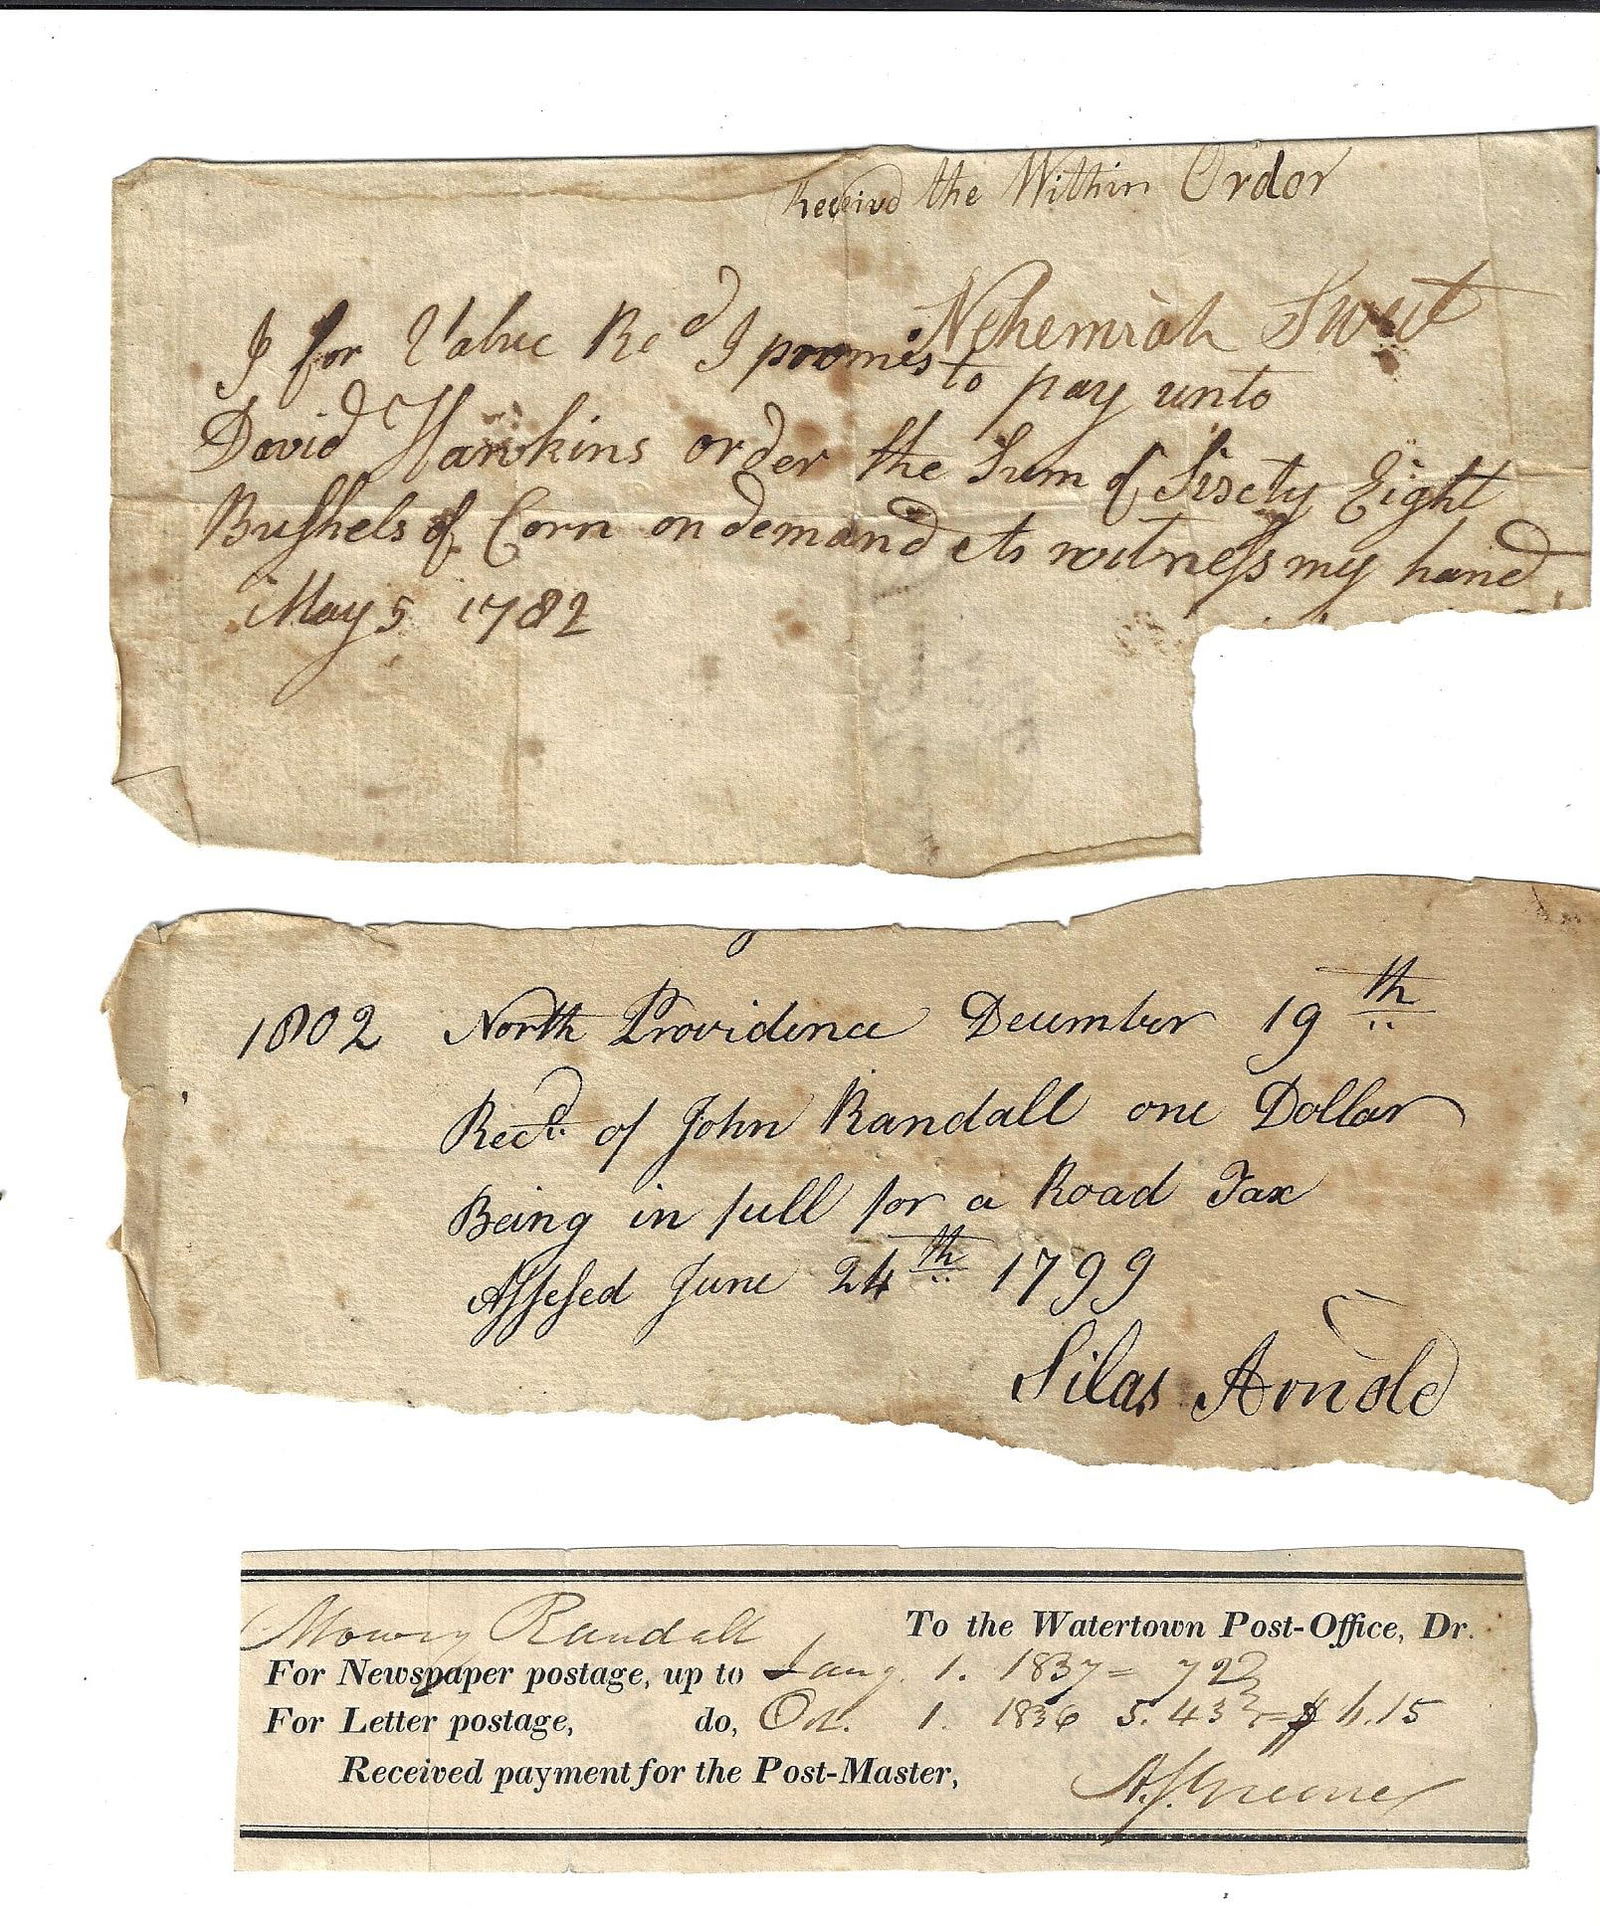 Receivd the Within Ordor
Nehemiah Sweet
I for Value Recd I promes to pay unto
David Hawkins order the Sum of Sixety Eight
Bushels of Corn on demand As witness my hand
May 5 1782
1802 North Providence December 19th
Recd. of John Randall one Dollar
Being in full for a Road Tax
Assesed June 24th 1799
Silas Arnold
Mowry Randall To the Watertown Post-Office, Dr.
For Newspaper postage, up to Jany. 1. 1837 = 72
For Letter postage, do, Oct. 1. 1836 5.43 = $ 6.15
Received payment for the Post-Master,
Greene